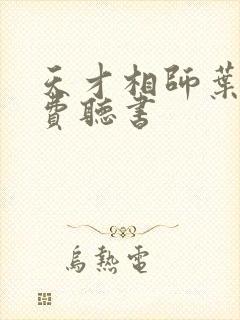 天才相師葉
費聽書
烏熱電